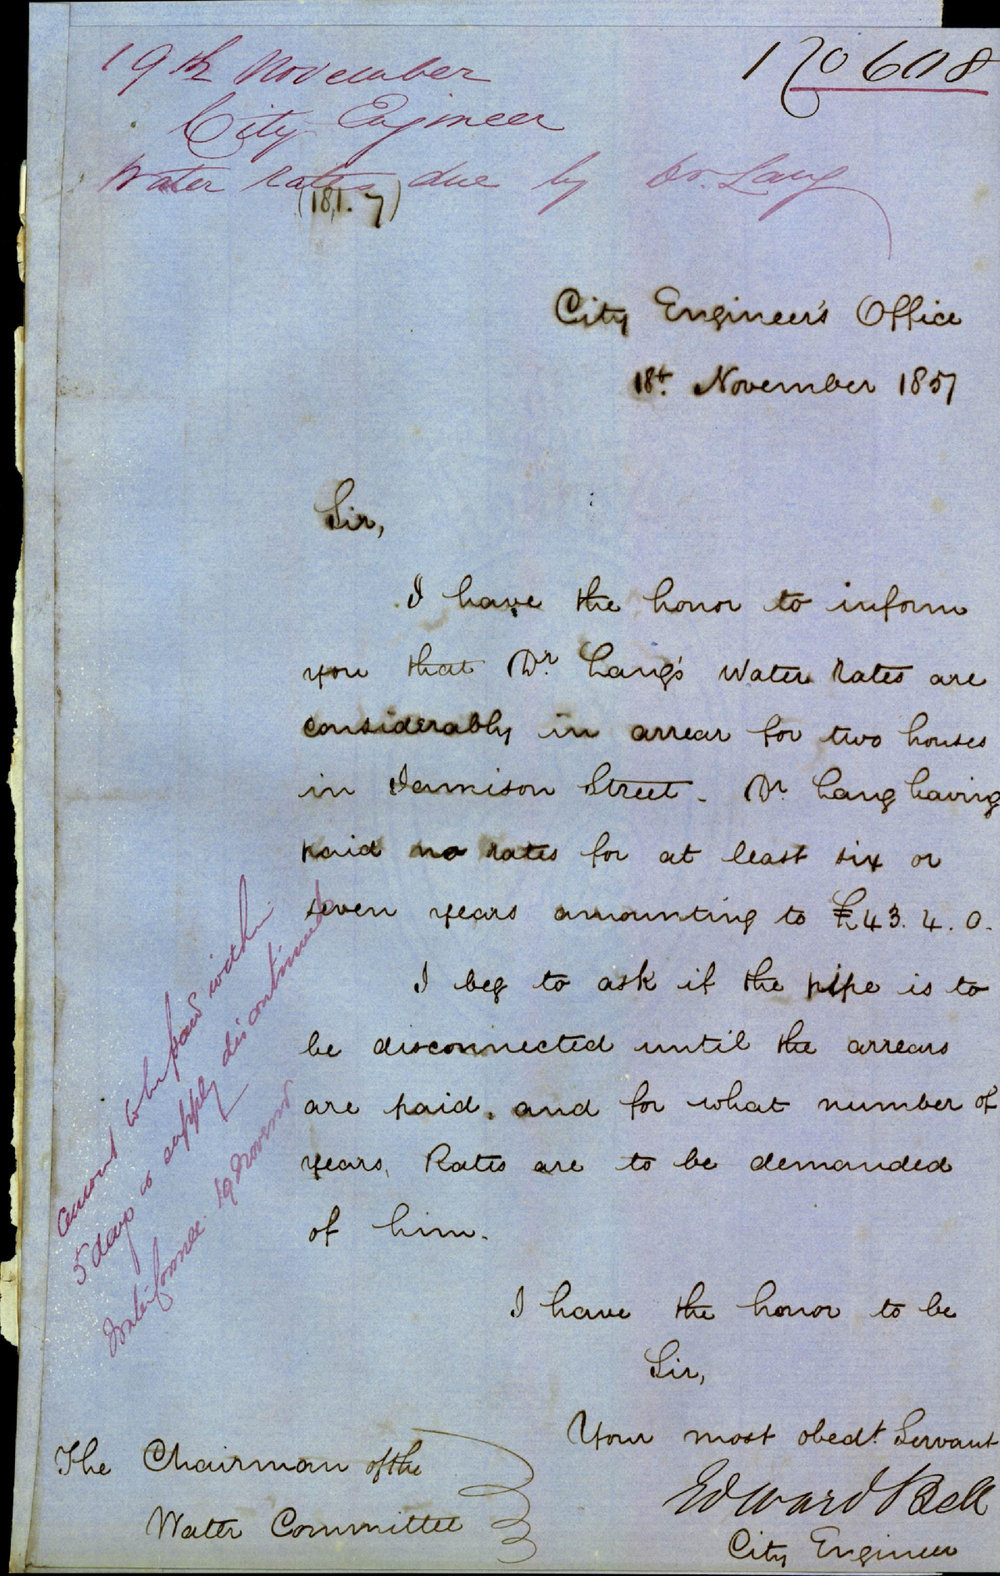 19th November
No 608
City Engineer
Water Rates due by Dr. Lang
(181. 7)
City Engineer's Office
18t. November 1857
Sir,
I have the honor to inform
you that Dr. Lang's Water Rates are
considerably in arrear for two houses
in Jamison Street. Dr. Lang having
paid no rates for at least six or
seven years amounting to £43. 4. 0.
I beg to ask if the pipe is to
be disconnected until the arrears
are paid, and for what number of
years, Rates are to be demanded
of him.
I have the honor to be
Sir,
Your most obedt. Servant
Edward Bell
City Engineer
The Chairman of the
Water Committee
amount to be paid within
5 days or supply discontinued
19 Novemr